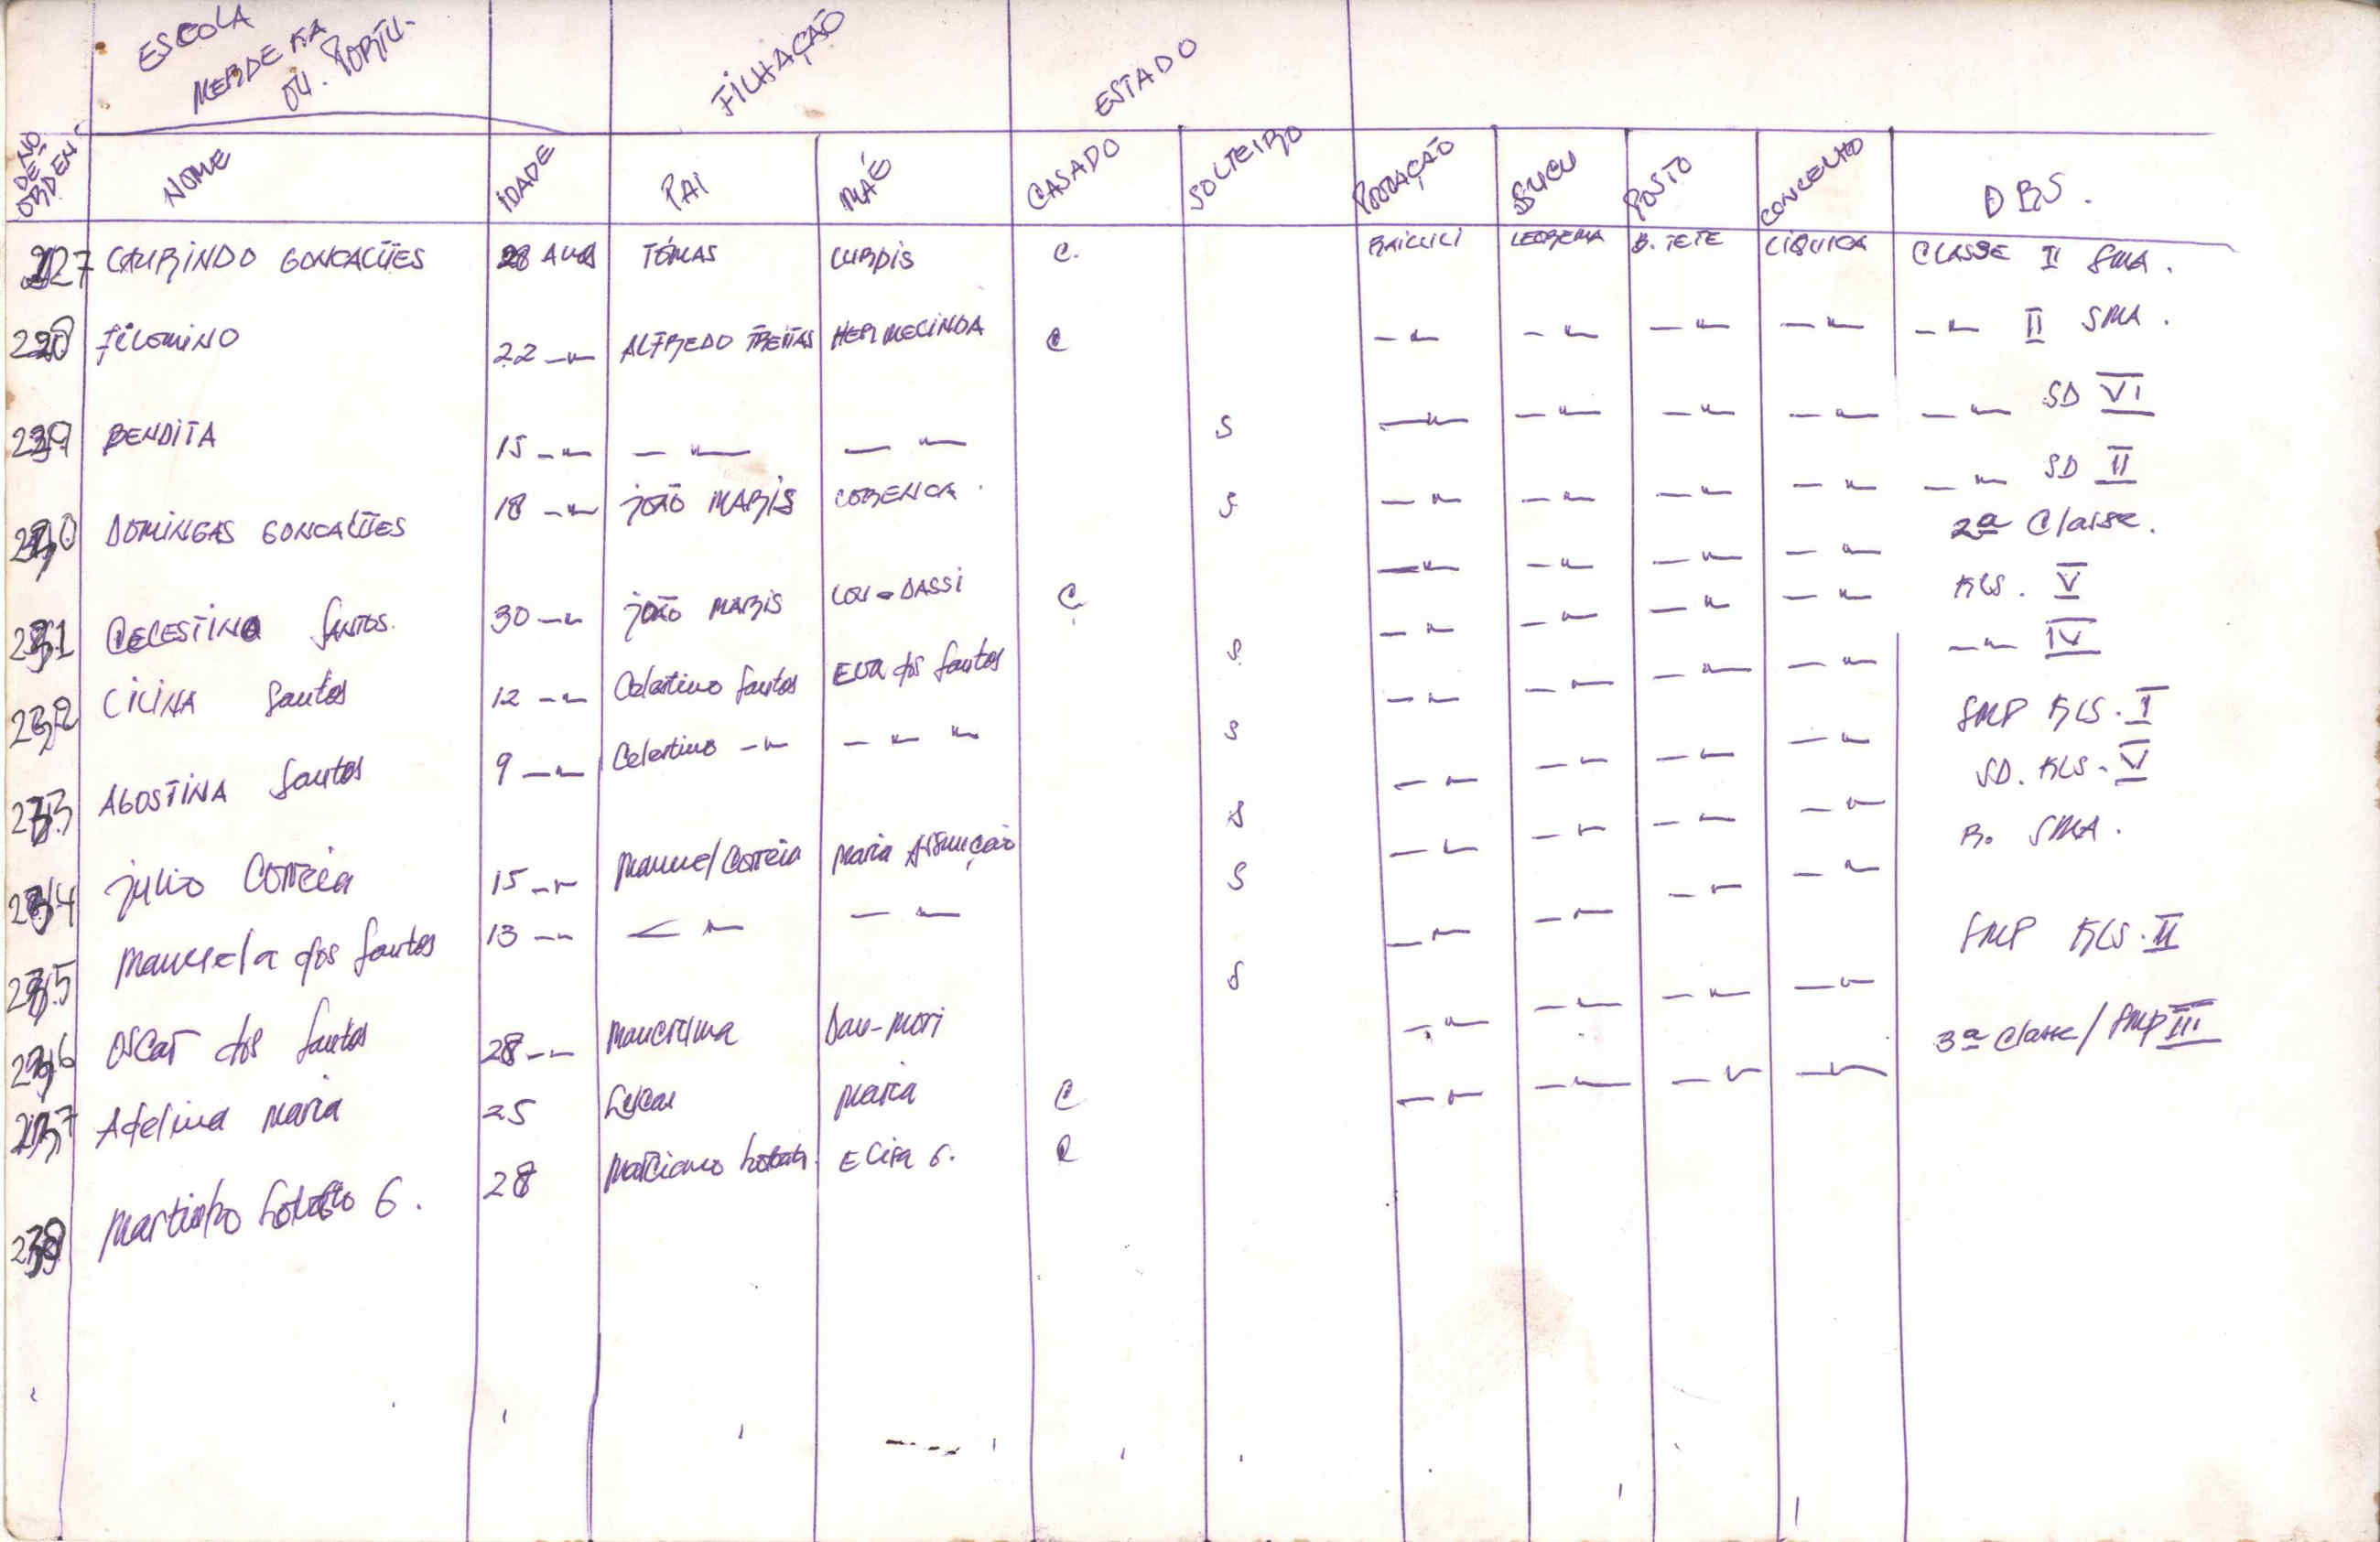 ESCOLA
MERDEKA
OU. PORTU-
FILHAÇÃO
ESTADO
NO DE ORDEN- NOME IDADE PAI MÃE CASADO SOLTEIRO POVOAÇÃO SUCU POSTO CONCELHO OBS.
227 LAURINDO GONCALVES 28 ANOS TÓMAS LURDIS C. BAILULI LEOREMA B. TETE LIQUICA CLASSE II SMA.
228 FILOMINO 22 -"- ALFREDO FREITAS HERMELINDA C -"- -"- -"- -"- -"- II SMA.
229 BENDITA 15 -"- -"- -"- S -"- -"- -"- -"- -"- SD VI
230 DOMINGAS GONCALVES 18 -"- JOÃO MARIS LORENCA. S -"- -"- -"- -"- -"- SD II
231 CELESTINO SANTOS. 30 -"- JOÃO MARIS LOU-DASSI C -"- -"- -"- -"- 2ª Classe.
232 CILINA Santos 12 -"- Celestino Santos EVA dos Santos S. -"- -"- -"- -"- KLS. V
233 AGOSTINA Santos 9 -"- Celestino -"- -"- " S -"- -"- -"- -"- -"- IV
234 Julio Correia 15 -"- Manuel Correia Maria Assunção S -"- -"- -"- -"- SMP KLS. I
235 Manuela dos Santos 13 -"- -"- -"- S -"- -"- -"- -"- SD. KLS. V
236 OSCAR dos Santos 28 -"- Dau-Mori S -"- -"- -"- -"- B. SMA.
237 Adelina Maria 25 Lucas Maria C -"- -"- -"- -"- SMP KLS. II
238 Martinho Lobato G. 28 Marciano Lobato. ELISA G. C -"- -"- -"- -"- 3ª Classe/SMP III